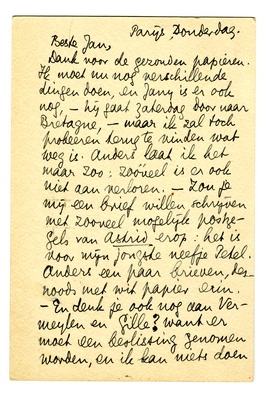 Parijs Donderdag.
Beste Jan,
Dank voor de gezonden papieren.
Ik moet nu nog verschillende
dingen doen, en Jany is er ook
nog, – hij gaat zaterdag door naar
Bretagne, – maar ik zal toch
probeeren terug te vinden wat
weg is. Anders laat ik het
maar zoo: zooveel is er ook
niet aan verloren. – Zou je
mij een brief willen schrijven
met zooveel mogelijk postze-
gels van Astrid erop: het is
voor mijn jongste neefje Petel.
Anders een paar brieven, des-
noods met wit papier erin.
– En denk je ook nog aan Ver-
meylen en Gille? want er
moet een beslissing genomen
worden, en ik kan niets doen